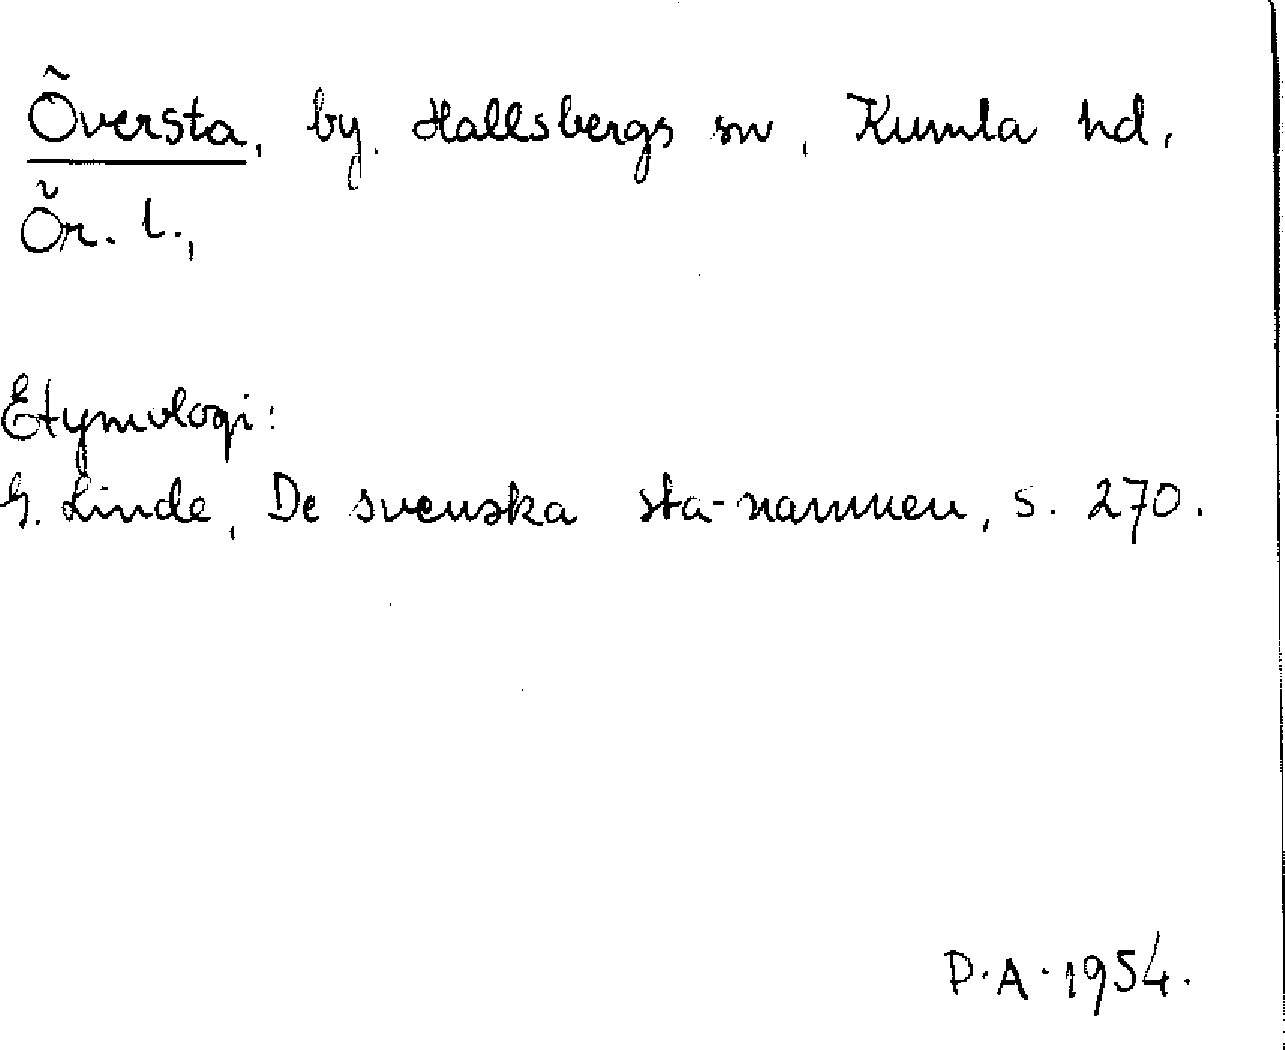 Översta, by. Hallsbergs sn, Kumla hd,
Ör. l.,
Etymologi:
G. Linde, De svenska sta-namnen, s. 270.
P.A. 1954.